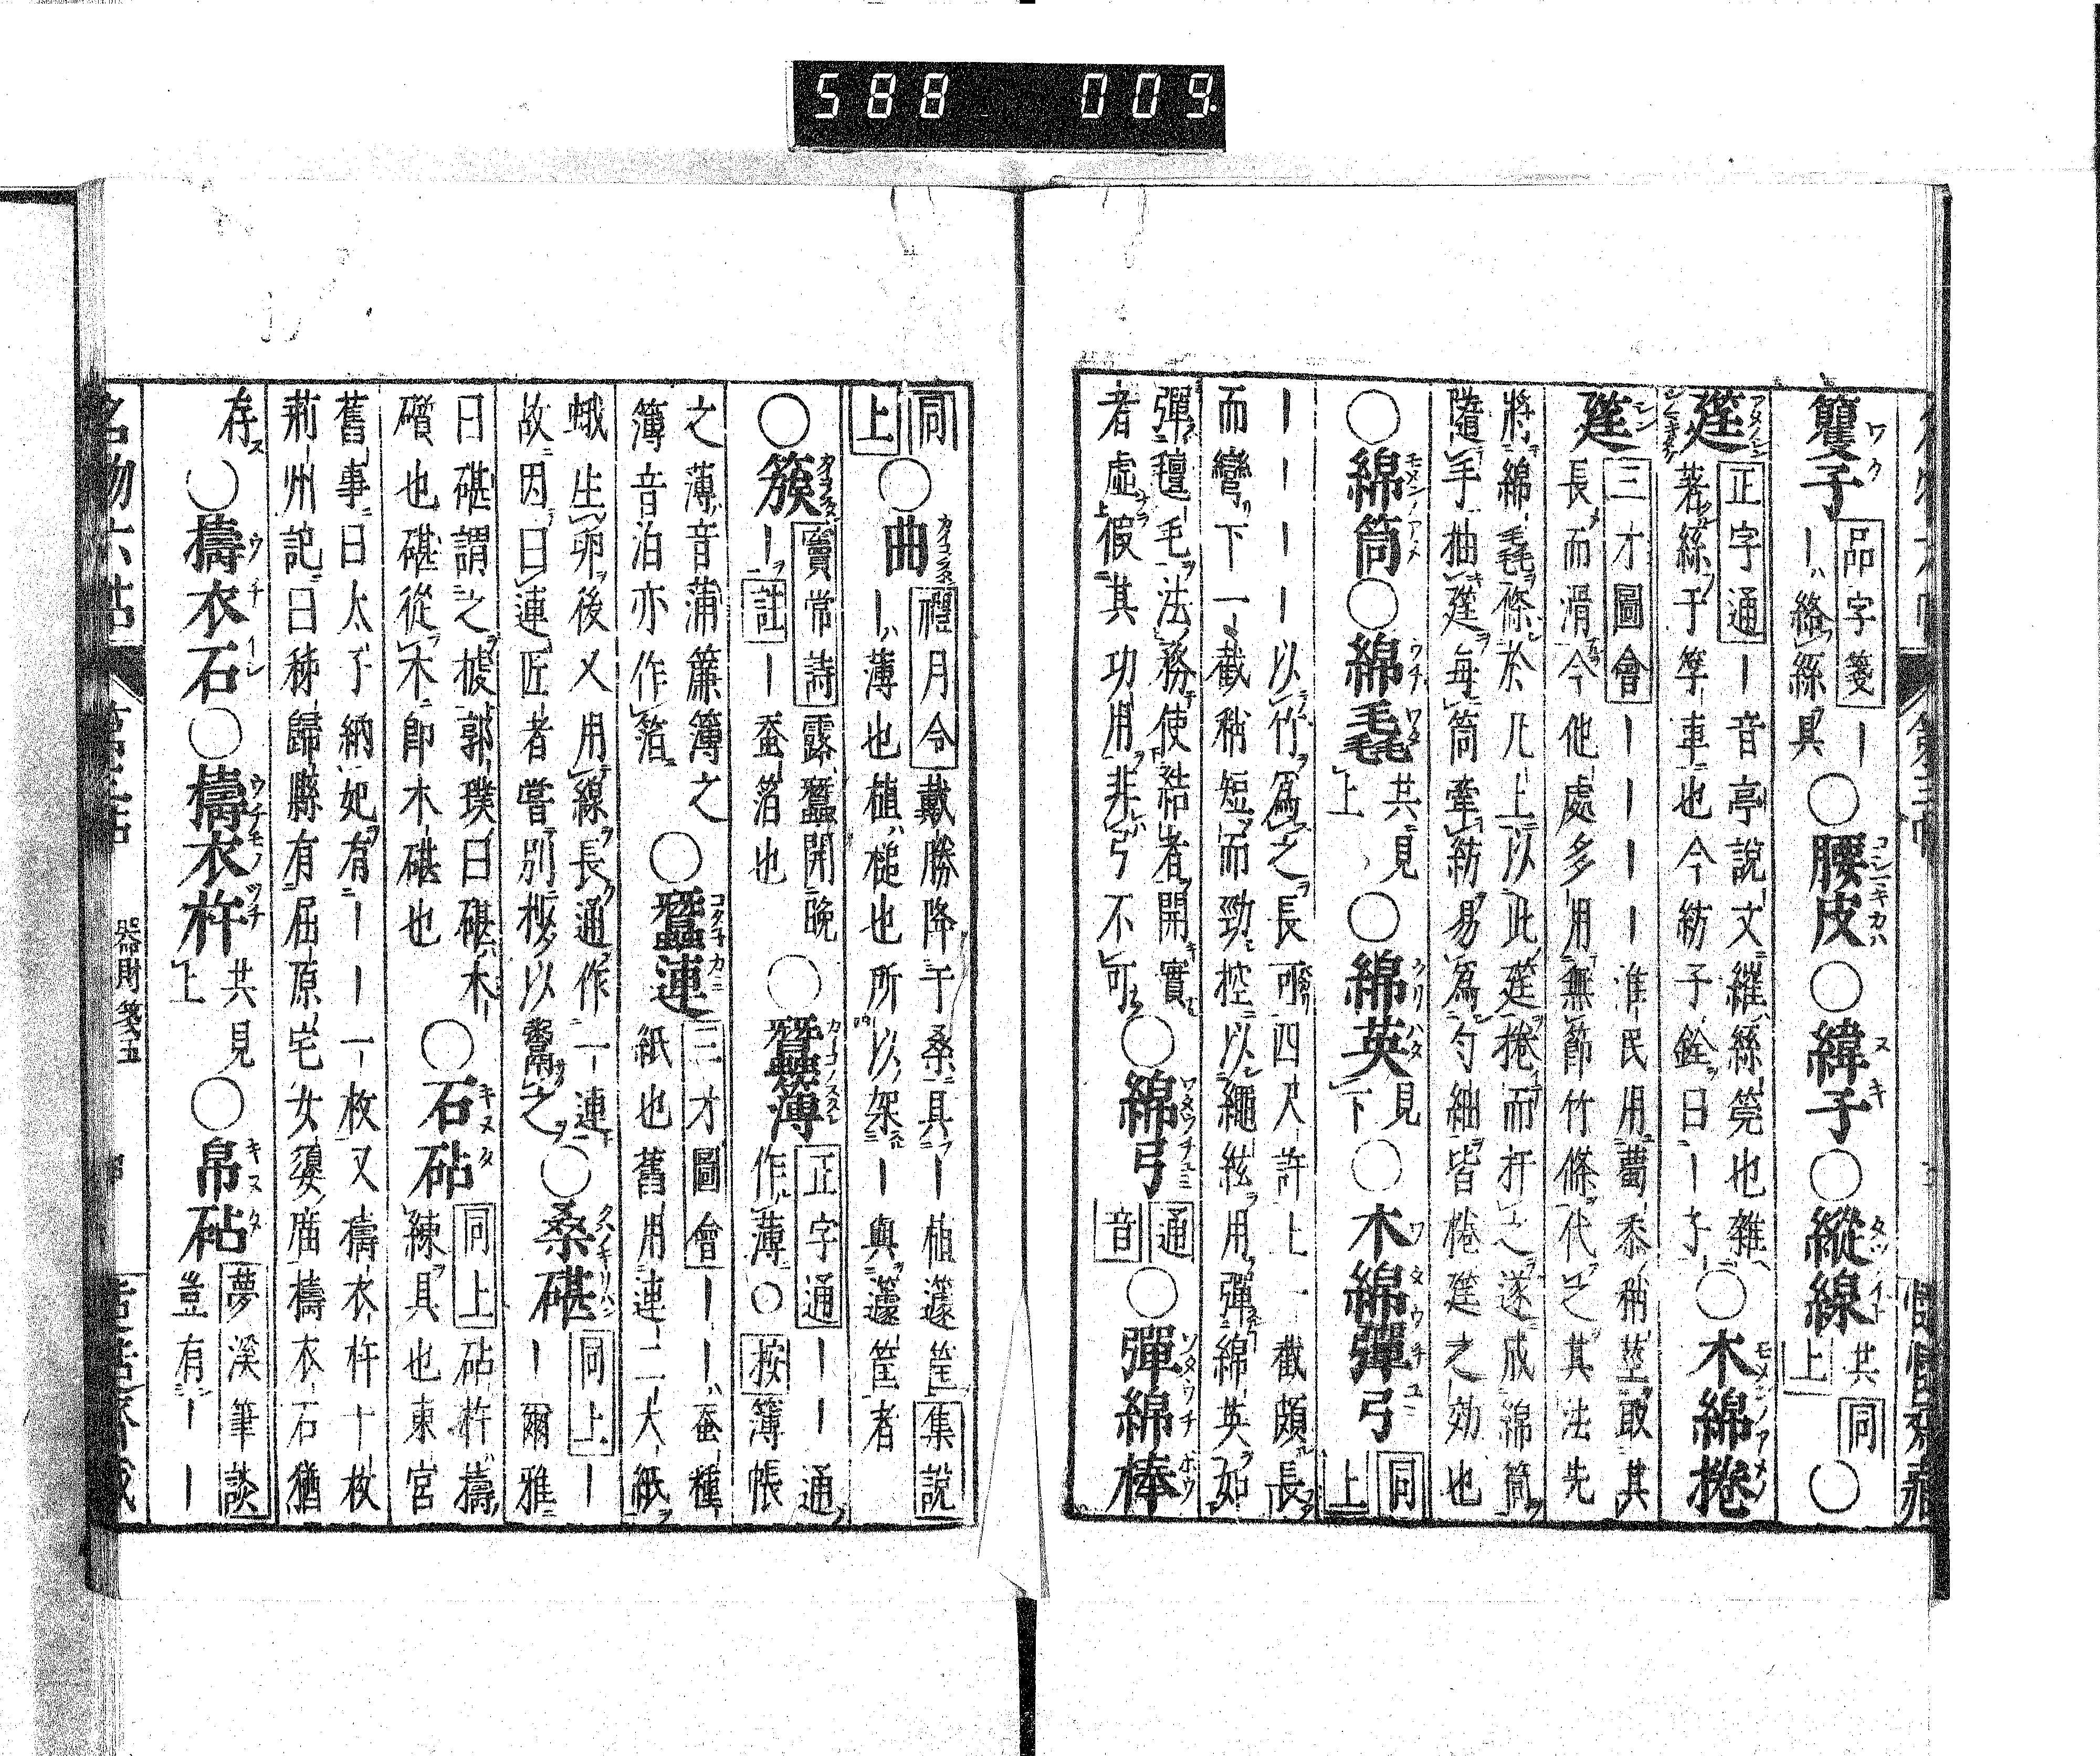 588 009
籰子 品字箋 ー
ーハ絡絲具
○腰皮○緯子○縱線 共同上○
筳 正字通 ー音亭說文繀絲筦也雜
著絲于筟車也今紡子銓曰ー子
○木綿捲
筳 三才圖會 ーーーー淮民用蜀黍稍莖取其
長而滑今他處多用無節竹條代之其法先
將綿毳條於几上以此筳捲而扞之遂成綿筒
隨手抽筳每筒牽紡易爲勻細皆捲筳之効也
○綿筒○綿毳 共見上○綿英 見下○木綿彈弓 同上
ーーーー以竹爲之長可四尺許上一截頗長
而彎下一截稍短而勁控以繩絃用彈綿英如
彈氊毛法務使結者開實
者虛假其功用非弓不可
○綿弓 通音○彈綿棒
同上○曲 禮月令 戴勝降于桑具ー植籧筐 集說
ーハ薄也植ハ槌也所以架ー與籧筐者
○簇 竇常詩 露蠶開晚
ー 註 ー蚕箔也
○蠶簿 正字通 ーー通
作薄○按 簿帳
之薄音蒲簾簿之
簿音泊亦作箔
○蠶連 三才圖會 ーーハ蚕種
紙也舊用連二大紙
蛾生卵後又用線長通作一連
故因曰連匠者嘗別抄以鬻之
○桑碪 同上 ー
ー爾雅
曰碪謂之榩郭璞曰碪ハ木
櫍也碪從木卽木碪也
○石砧 同上 砧杵擣
練具也東宮
舊事曰太子納妃有ーー一枚又擣衣杵十枚
荊州記曰秭歸縣有屈原宅女嬃廟擣衣石猶
存○擣衣石○擣衣杵 共見上○帛砧 夢溪筆談
豈有ーー
名物六帖
器財箋五